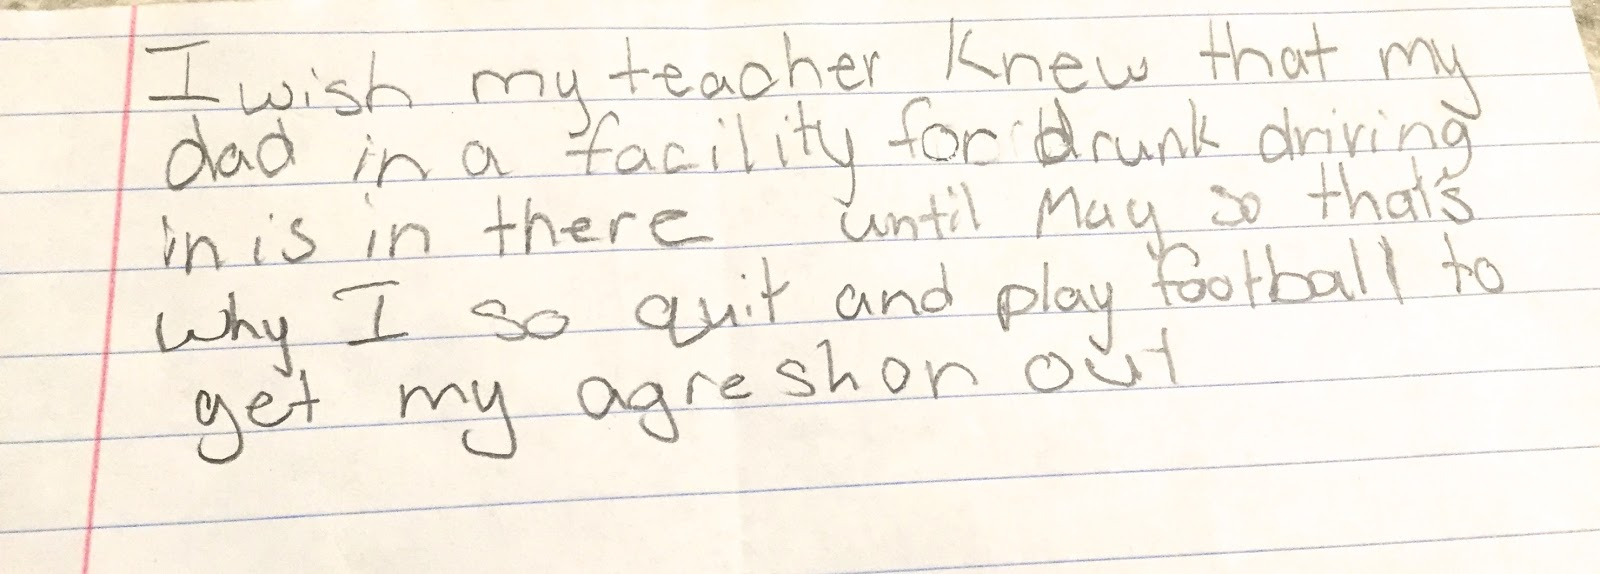 I wish my teacher knew that my
dad in a facility for drunk driving
in is in there until May so that's
why I so quit and play football to
get my agreshon out